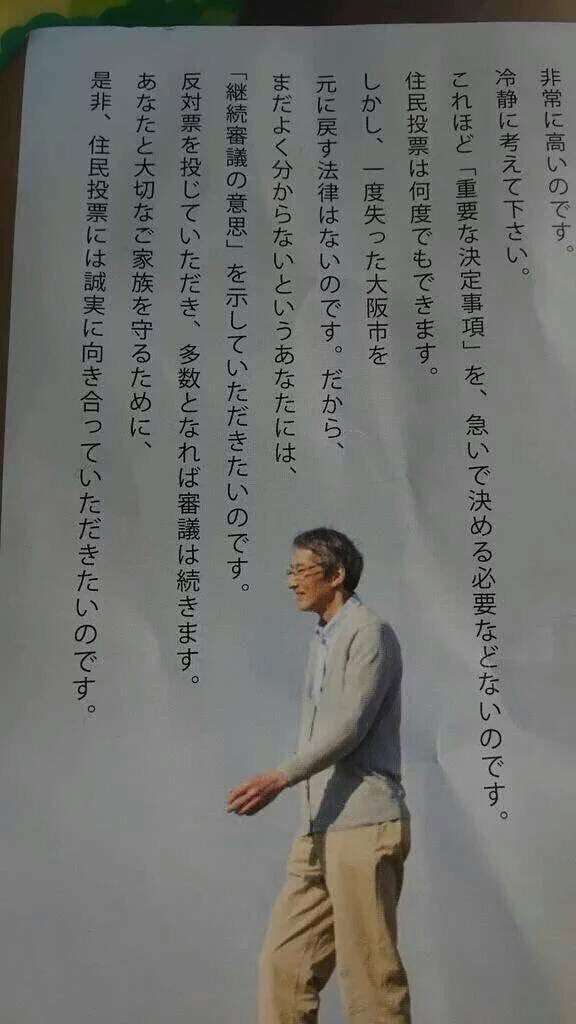 非常に高いのです。
冷静に考えて下さい。
これほど「重要な決定事項」を、急いで決める必要などないのです。
住民投票は何度でもできます。
しかし、一度失った大阪市を
元に戻す法律はないのです。だから、
まだよく分からないというあなたには、
「継続審議の意思」を示していただきたいのです。
反対票を投じていただき、多数となれば審議は続きます。
あなたと大切なご家族を守るために、
是非、住民投票には誠実に向き合っていただきたいのです。